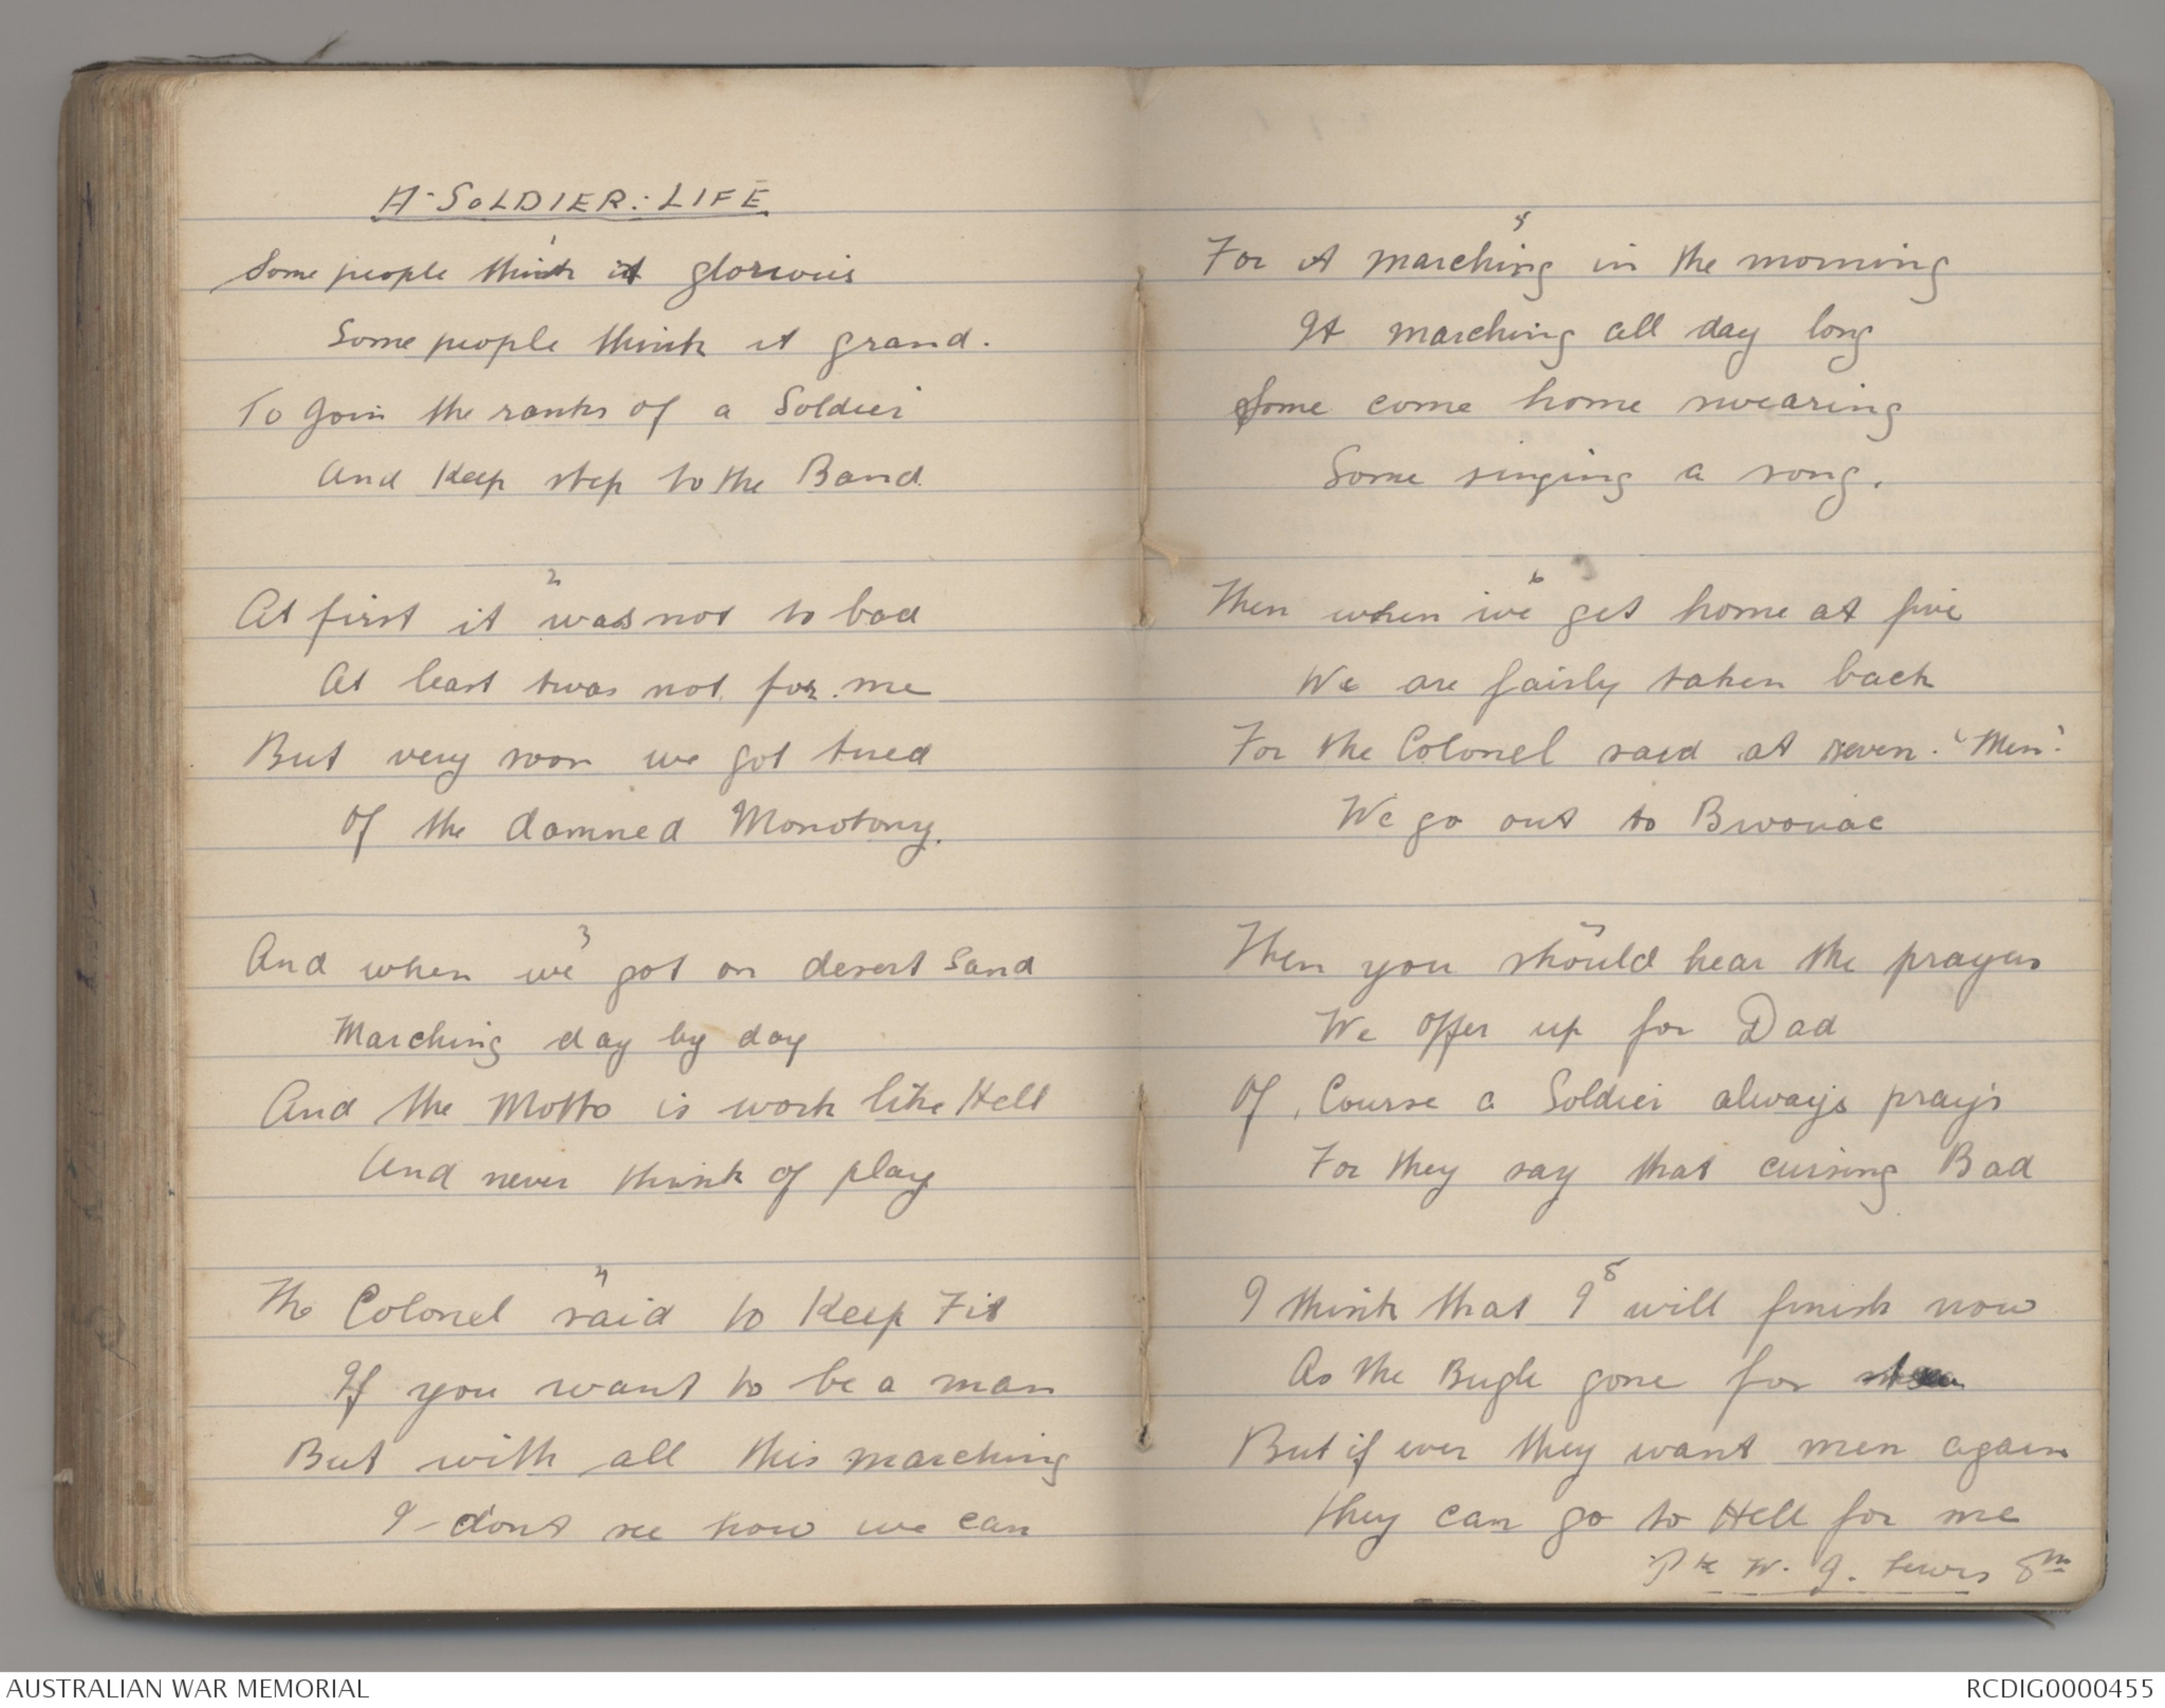 A-SOLDIER:-LIFE
1
Some people think it glorious
Some people think it grand.
To Join the ranks of a Soldier
And Keep step to the Band.
2
At first it was not to bad
At least twas not for me
But very soon we got tired
Of the damned Monotony.
3
And when we got on desert Sand
Marching day by day
And the Motto is work like Hell
And never think of play
4
The Colonel said to Keep Fit
If you want to be a man
But with all this marching
I-dont see how we can
5
For it marching in the morning
It marching all day long
Some come home swearing
Some singing a song.
6
Then when we get home at five
We are fairly taken back
For the Colonel said at seven. "Men".
We go out to Bivouac
7
Then you should hear the prayers
We offer up for Dad
Of, Course a Soldier always pray's
For they say that cursing Bad
8
I think that I will finish now
As the Bugle gone for
But if ever they want men again
they can go to Hell for me
Pte W. J. Lewis 8th
AUSTRALIAN WAR MEMORIAL
RCDIG0000455